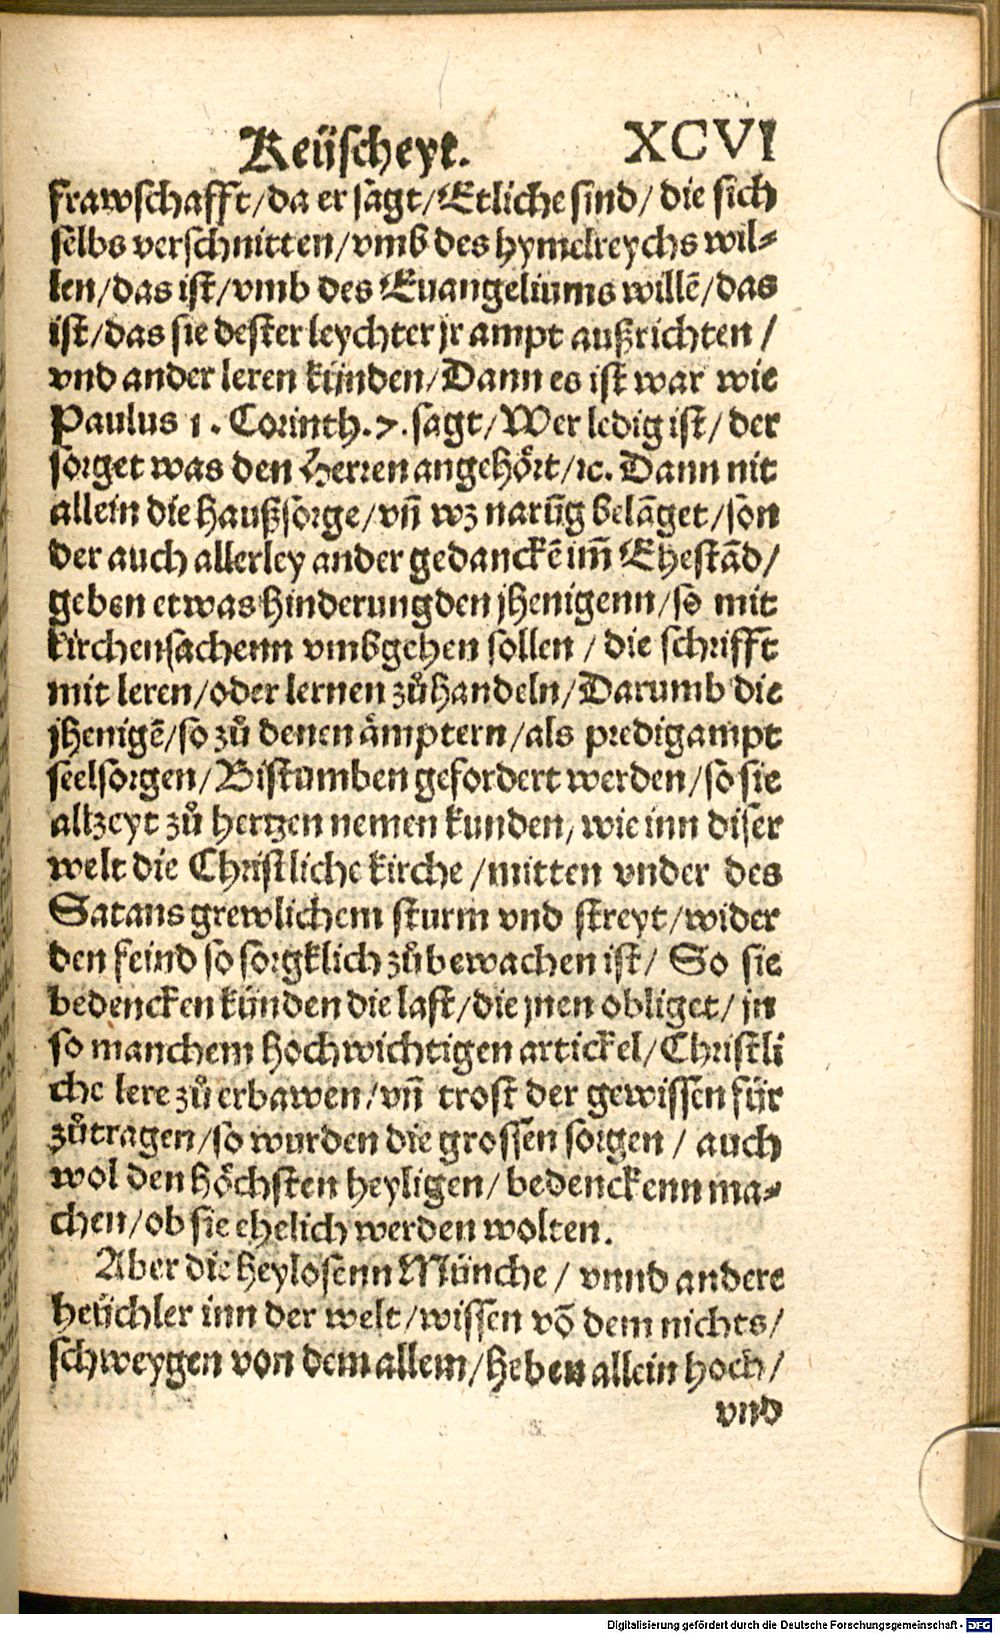 Keüscheyt. XCVI
frawschafft/da er sagt/Etliche sind/ die sich
selbs verschnitten/vmb des hymelreychs wil⸗
len/das ist/vmb des Euangeliums willē/das
ist/das sie dester leychter jr ampt außrichten /
vnd ander leren künden/Dann es ist war wie
Paulus 1. Corinth.7.sagt/Wer ledig ist/ der
sorget was den Herren angehört/ꝛc. Dann nit
allein die haußsorge/vñ wz narūg belāget/son
der auch allerley ander gedanckē im̄ Ehestād/
geben etwas hinderung den jhenigenn/so mit
kirchensachenn vmbgehen sollen / die schrifft
mit leren/oder lernen zůhandeln/Darumb die
jhenigē/so zů denen ämptern/als predigampt
seelsorgen/Bistumben gefordert werden/so sie
allzeyt zů hertzen nemen kunden/ wie inn diser
welt die Christliche kirche /mitten vnder des
Satans grewlichem sturm vnd streyt/wider
den feind so sorgklich zůbewachen ist/ So sie
bedencken künden die last/die jnen obliget/ jn
so manchem hochwichtigen artickel/Christli
che lere zů erbawen/vñ trost der gewissen für
zůtragen/so wurden die grossen sorgen / auch
wol den höchsten heyligen/ bedenckenn ma⸗
chen/ob sie ehelich werden wolten.
Aber die heylosenn Münche / vnnd andere
heüchler inn der welt/wissen vō dem nichts/
schweygen von dem allem/heben allein hoch/
vnd
Digitalisierung gefördert durch die Deutsche Forschungsgemeinschaft - DFG